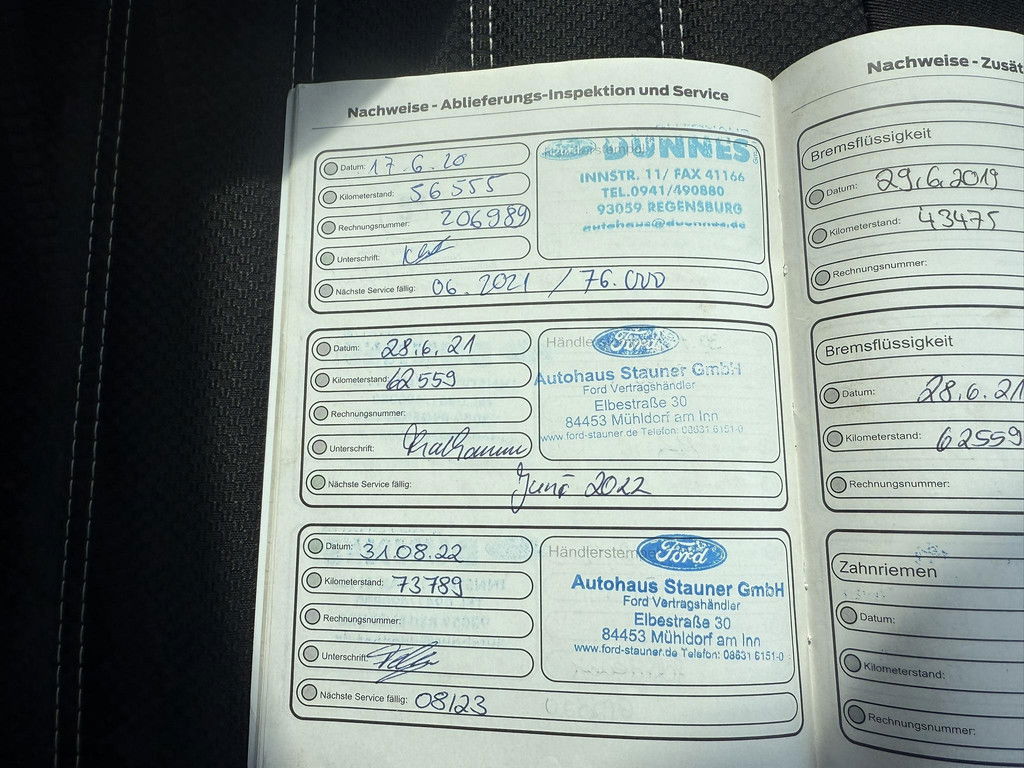 Nachweise - Ablieferungs-Inspektion und Service
Datum: 17.6.20
Kilometerstand: 56555
Rechnungsnummer: 206989
Unterschrift:
Nächste Service fällig: 06.2021 / 76.000
DÜNNES
INNSTR. 11/ FAX 41166
TEL.0941/490880
93059 REGENSBURG
autohaus@duennes.de
Datum: 28.6.21
Kilometerstand: 62559
Rechnungsnummer:
Unterschrift:
Nächste Service fällig: Juni 2022
Ford
Autohaus Stauner GmbH
Ford Vertragshändler
Elbestraße 30
84453 Mühldorf am Inn
www.ford-stauner.de Telefon: 08631 6151-0
Datum: 31.08.22
Kilometerstand: 73789
Rechnungsnummer:
Unterschrift:
Nächste Service fällig: 08/23
Händlerstempe
Ford
Autohaus Stauner GmbH
Ford Vertragshändler
Elbestraße 30
84453 Mühldorf am Inn
www.ford-stauner.de Telefon: 08631 6151-0
Nachweise - Zusät
Bremsflüssigkeit
Datum: 29.6.2019
Kilometerstand: 43475
Rechnungsnummer:
Bremsflüssigkeit
Datum: 28.6.21
Kilometerstand: 62559
Rechnungsnummer:
Zahnriemen
Datum:
Kilometerstand:
Rechnungsnummer: